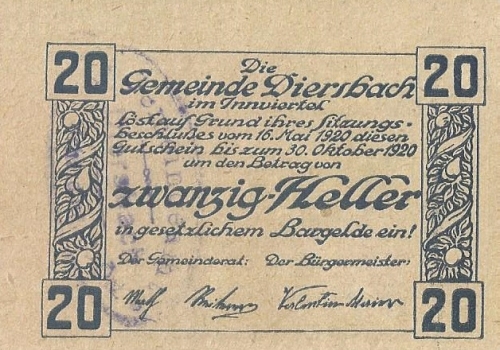 20 Die 20
Gemeinde Diersbach
im Innviertel
löst auf Grund ihres Sitzungs-
beschlußes vom 16. Mai 1920 diesen
Gutschein bis zum 30. Oktober 1920
um den Betrag von
zwanzig-Heller
in gesetzlichem Bargelde ein!
Der Gemeinderat: Der Bürgermeister:
20 Valentin Maier 20